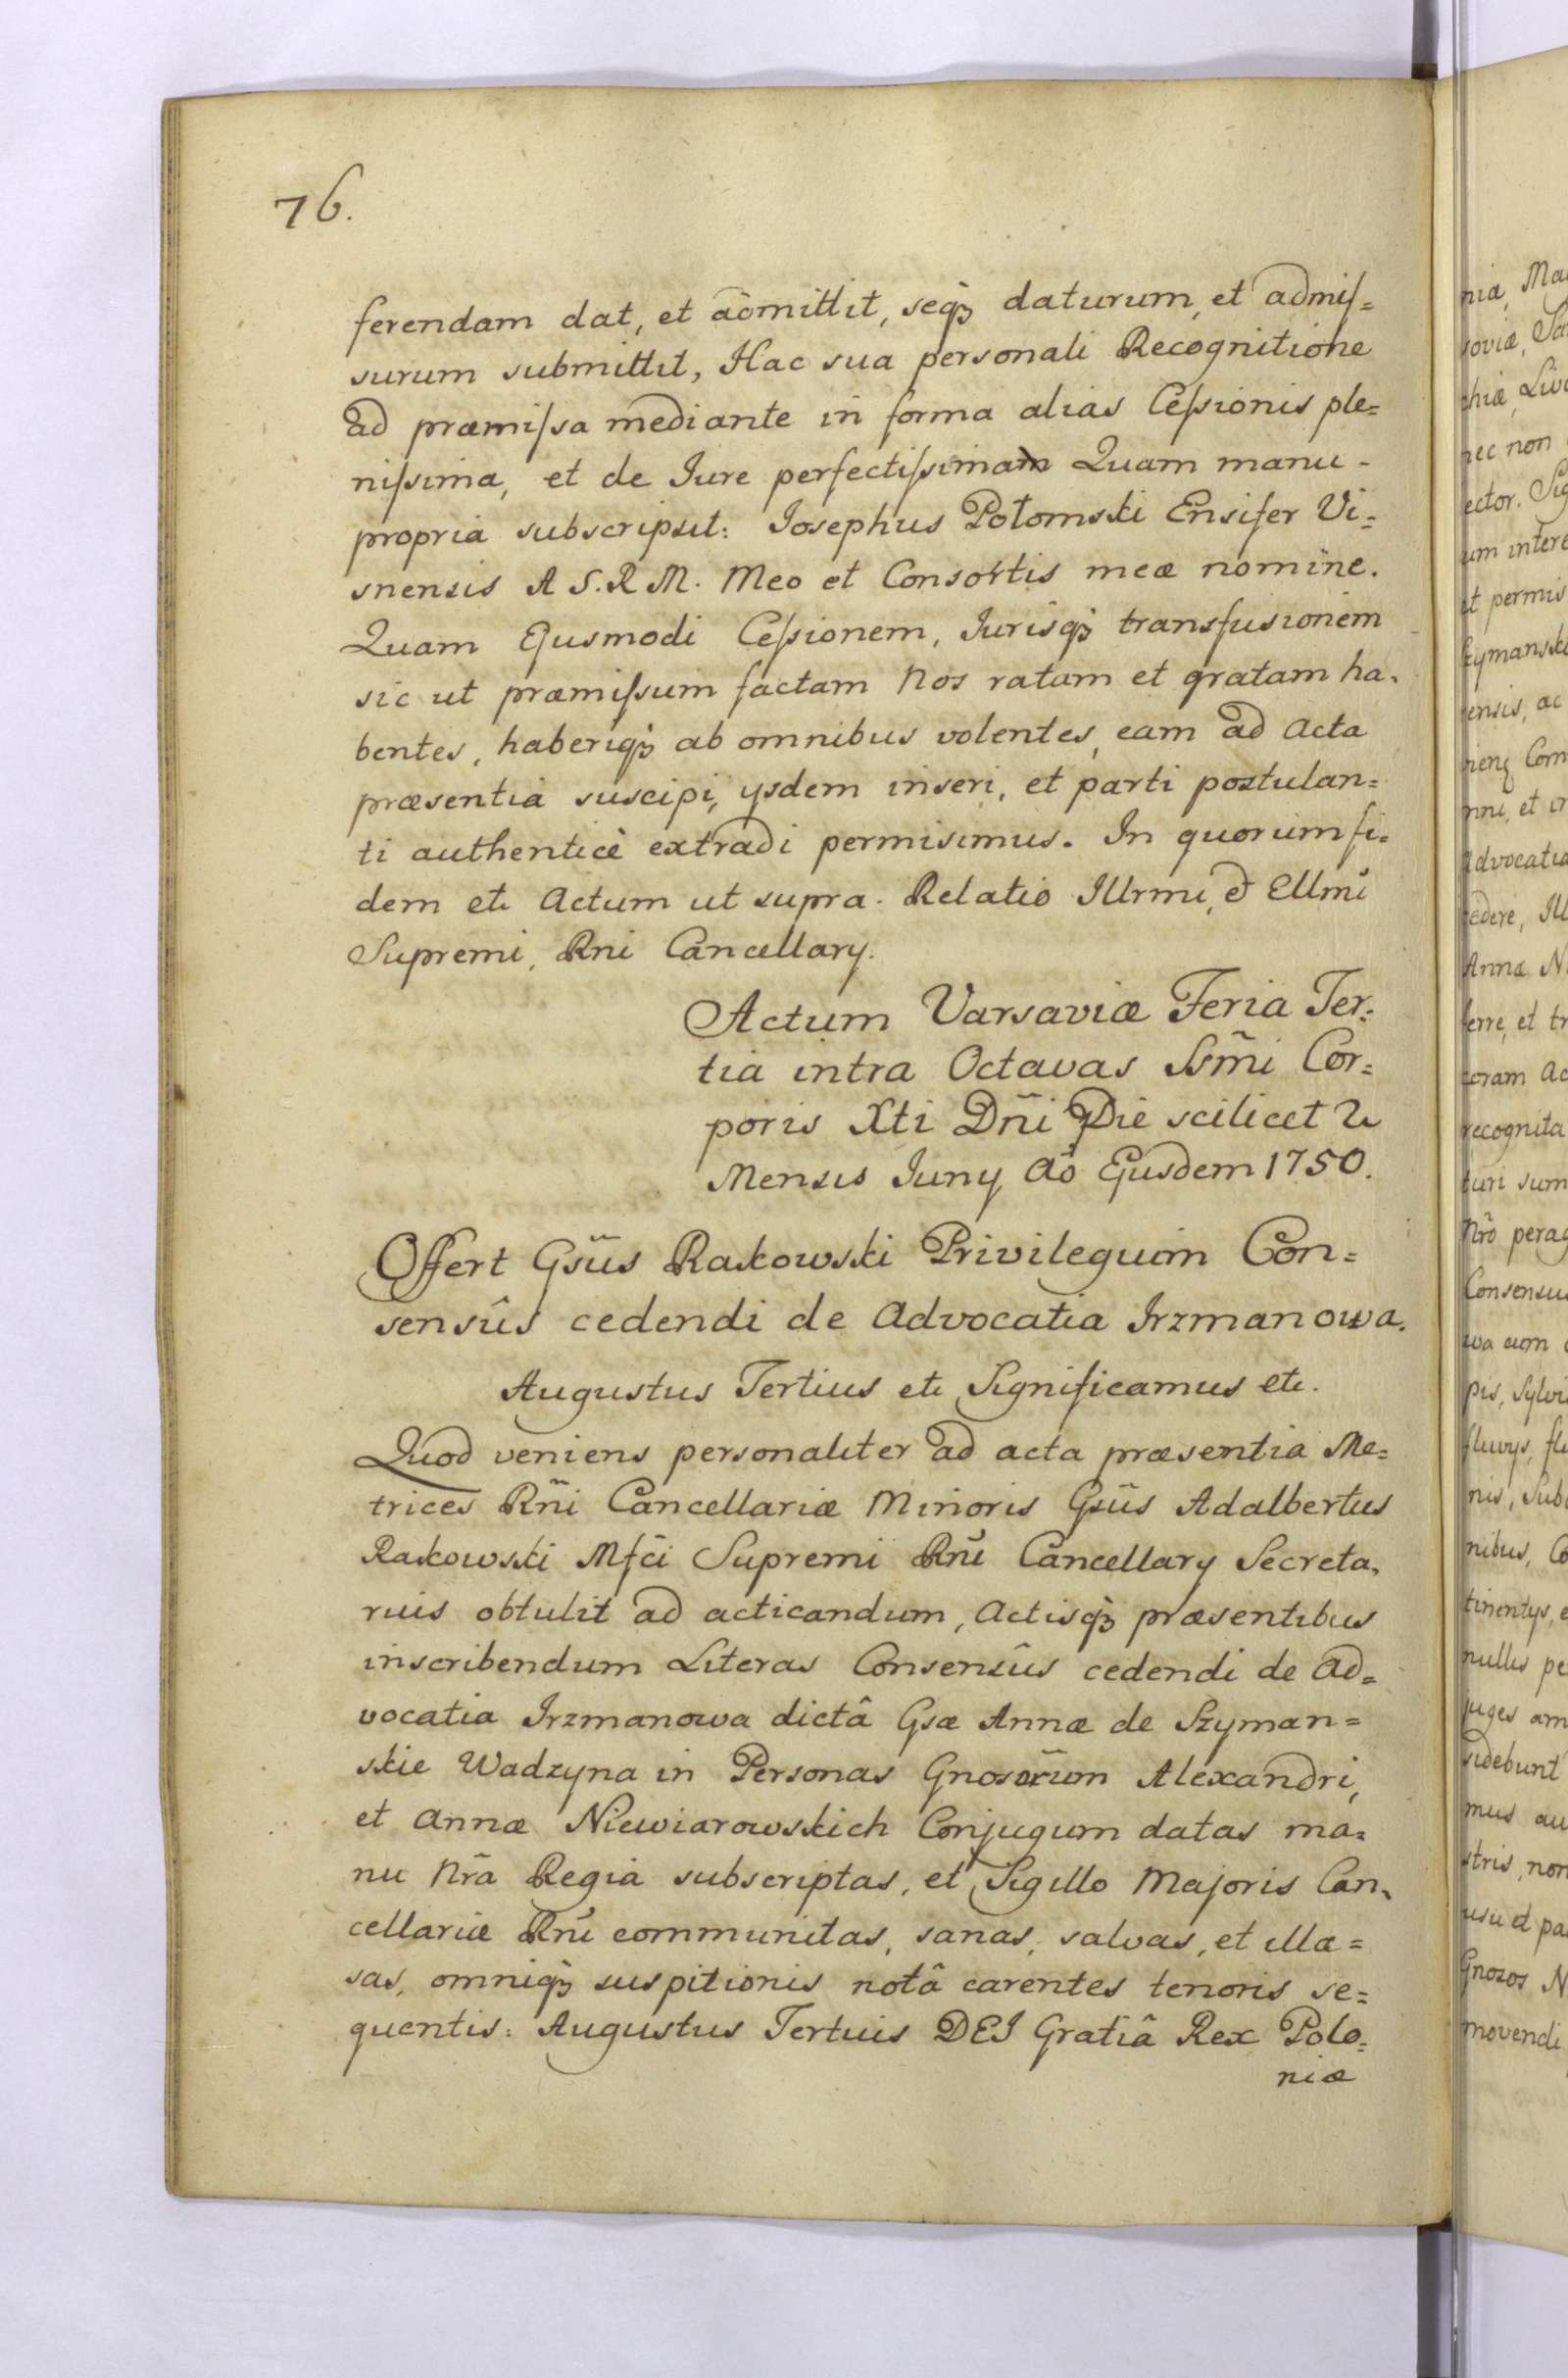 76.
ferendam dat, et admittit, seq₃ daturum, et admiſ=
surum submittit, Hac sua personali Recognitione
ad præmiſsa mediante in forma alias Ceſsionis ple=
niſsima, et de Jure perfectiſsimam Quam manu-
propria subscripsit: Josephus Potomski Ensifer Vi=
snensis A S.R.M. Meo et Consortis meæ nomine.
Quam Ejusmodi Ceſsionem, Jurisq₃ transfusionem
sic ut præmiſsum factam Nos ratam et gratam ha=
bentes, haberiq₃ ab omnibus volentes, eam ad Acta
præsentia suscipi, ysdem inseri, et parti postulan=
ti authenticè extradi permisimus. In quorum fi=
dem etc Actum ut supra. Relatio Illrmi, et Ellmi
Supremi, Rni Cancellary.
Actum Varsaviæ Feria Ter=
tia intra Octavas Ssm̃i Cor=
poris Xti Dñi Die scilicet 2
Mensis Juny Aõ Ejusdem 1750.
Offert Gsũs Rakowski Privilegium Con=
sensûs cedendi de Advocatia Jrzmanowa.
Augustus Tertius etc Significamus etc.
Quod veniens personaliter ad acta præsentia Me=
trices Rñi Cancellariæ Minoris Gsũs Adalbertus
Rakowski Mfci Supremi Rnĩ Cancellary Secreta=
rius obtulit ad acticandum, Actisq₃ præsentibus
inscribendum Literas Consensûs cedendi de Ad=
vocatia Jrzmanowa dictâ Gsæ Annæ de Szyman=
skie Wadzyna in Personas Gnosorũm Alexandri,
et Annæ Niewiarowskich Conjugum datas ma=
nu Nrã Regia subscriptas, et Sigillo Majoris Can=
cellariæ Rnĩ communitas, sanas, salvas, et illæ=
sas, omniq₃ suspitionis notâ carentes tenoris se=
quentis: Augustus Tertuis DEI Gratiâ Rex Polo=
niæ